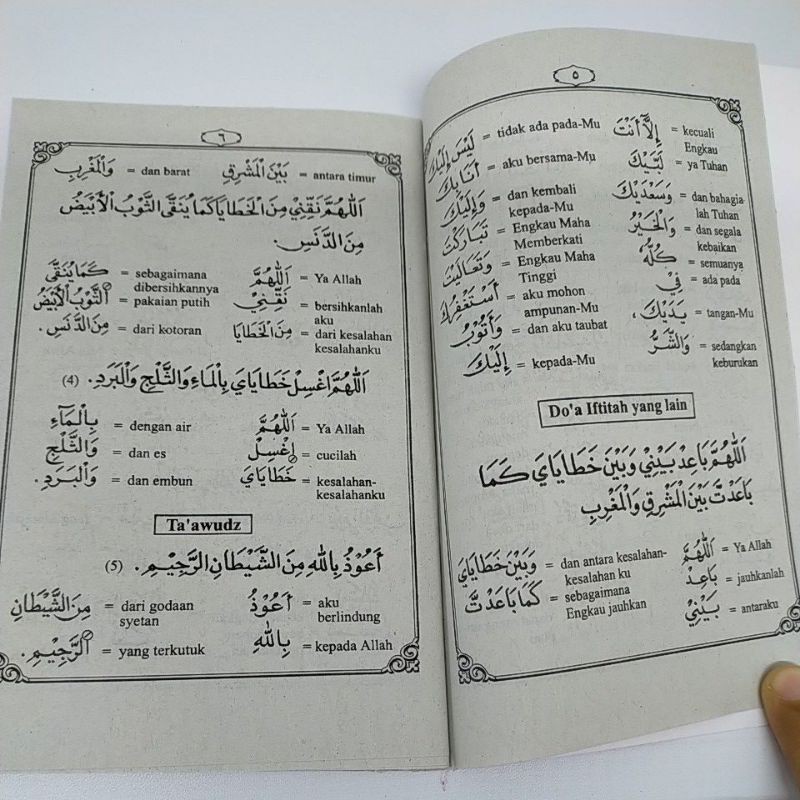 ٥
إِلاَّ أَنْتَ = kecuali Engkau
لَيْسَ إِلَيْكَ = tidak ada pada-Mu
لَبَّيْكَ = ya Tuhan
أَنَا بِكَ = aku bersama-Mu
وَسَعْدَيْكَ = dan bahagia lah Tuhan
وَإِلَيْكَ = dan kembali kepada-Mu
وَالْخَيْرُ = dan segala kebaikan
تَبَارَكْتَ = Engkau Maha Memberkati
كُلُّهُ = semuanya
وَتَعَالَيْتَ = Engkau Maha Tinggi
فِيْ = ada pada
أَسْتَغْفِرُكَ = aku mohon ampunan-Mu
يَدَيْكَ، = tangan-Mu
وَأَتُوْبُ = dan aku taubat
وَالشَّرُّ = sedangkan keburukan
إِلَيْكَ = kepada-Mu
Do'a Iftitah yang lain
اَللّٰهُمَّ بَاعِدْ بَيْنِيْ وَبَيْنَ خَطَايَايَ كَمَا
بَاعَدْتَّ بَيْنَ الْمَشْرِقِ وَالْمَغْرِبِ
اَللّٰهُمَّ = Ya Allah
وَبَيْنَ خَطَايَايَ = dan antara kesalahan-kesalahan ku
بَاعِدْ = jauhkanlah
كَمَا بَاعَدْتَّ = sebagaimana Engkau jauhkan
بَيْنِيْ = antaraku
٦
بَيْنَ الْمَشْرِقِ = antara timur
وَالْمَغْرِبِ = dan barat
اَللّٰهُمَّ نَقِّنِيْ مِنَ الْخَطَايَا كَمَا يُنَقَّى الثَّوْبُ الْأَبْيَضُ
مِنَ الدَّنَسِ.
اَللّٰهُمَّ = Ya Allah
كَمَا يُنَقَّى = sebagaimana dibersihkannya
نَقِّنِيْ = bersihkanlah aku
الثَّوْبُ الْأَبْيَضُ = pakaian putih
مِنَ الْخَطَايَا = dari kesalahan kesalahanku
مِنَ الدَّنَسِ. = dari kotoran
اَللّٰهُمَّ اغْسِلْ خَطَايَايَ بِالْمَاءِ وَالثَّلْجِ وَالْبَرَدِ. (4)
اَللّٰهُمَّ = Ya Allah
بِالْمَآءِ = dengan air
اغْسِلْ = cucilah
وَالثَّلْجِ = dan es
خَطَايَايَ = kesalahan-kesalahanku
وَالْبَرَدِ. = dan embun
Ta'awudz
أَعُوْذُ بِاللهِ مِنَ الشَّيْطَانِ الرَّجِيْمِ. (5)
أَعُوْذُ = aku berlindung
مِنَ الشَّيْطَانِ = dari godaan syetan
بِاللهِ = kepada Allah
الرَّجِيْمِ. = yang terkutuk